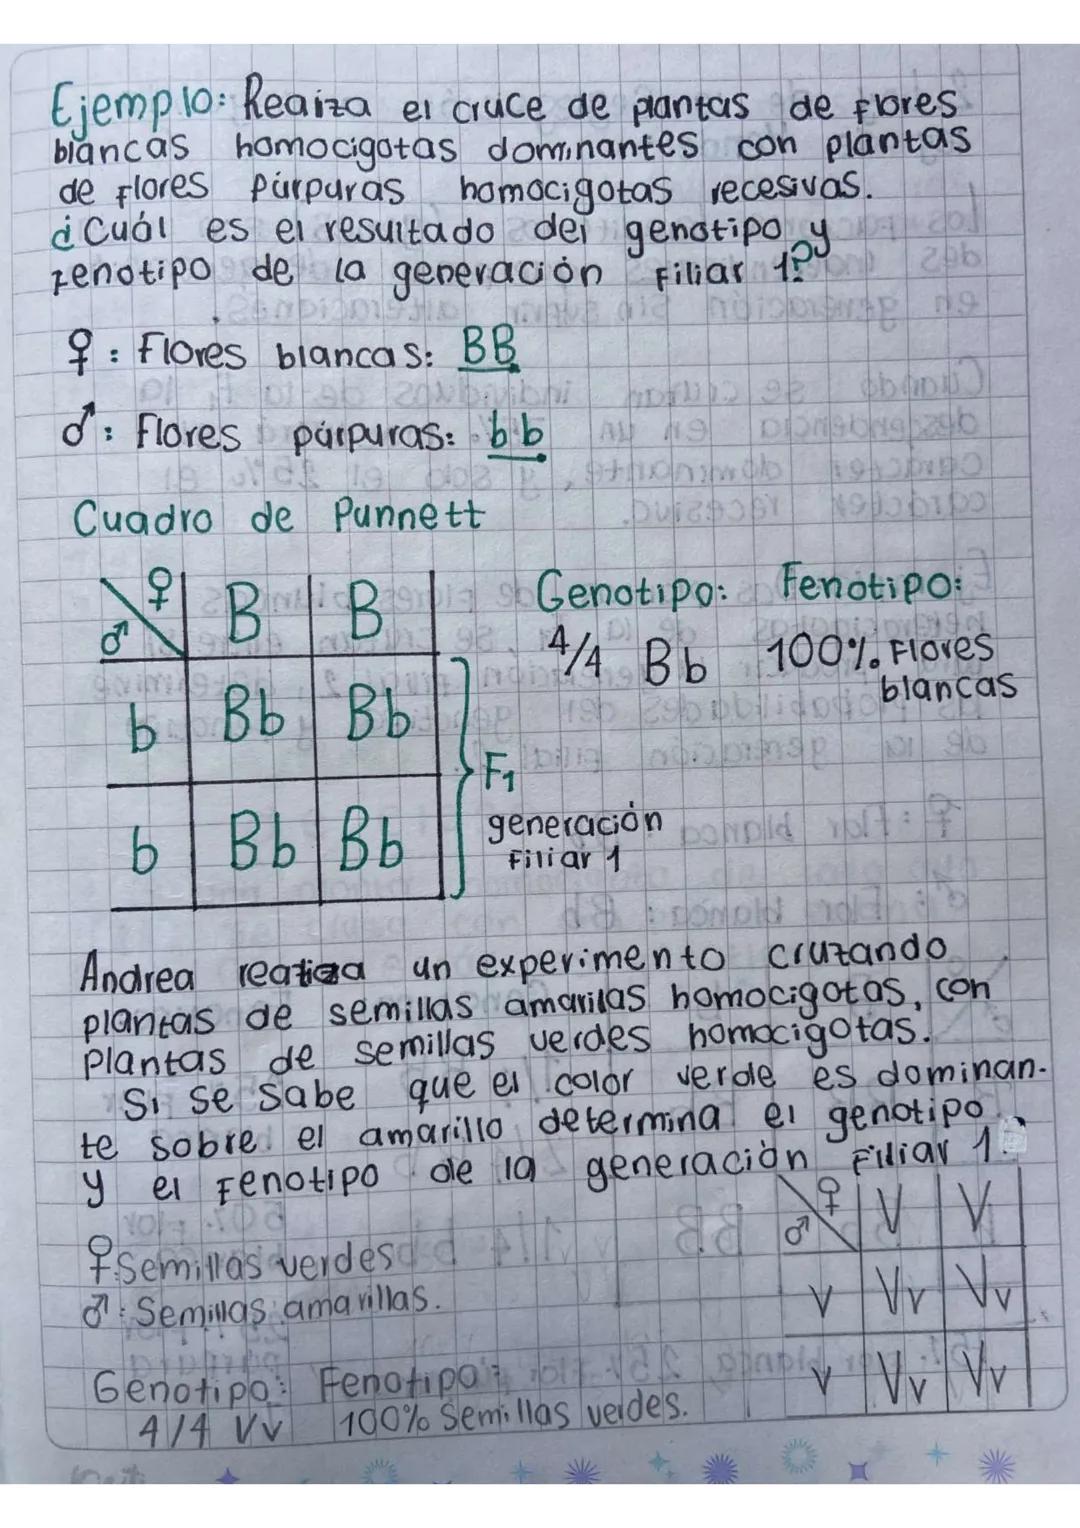 Ejemplo: Reaiza el cruce de plantas de flores
blancas homocigotas dominantes con plantas
de flores púrpuras homocigotas recesivas.
¿Cuál es el resultado del genotipo y
fenotipo de la generación Filiar 1?
♀: Flores blancas: BB
♂: Flores púrpuras: bb
Cuadro de Punnett
♀ B B
♂
b Bb Bb
b Bb Bb
F1
generación
Filiar 1
Genotipo: Fenotipo:
4/4 Bb 100% Flores
blancas
Andrea realiza un experimento cruzando
plantas de semillas amarillas homocigotas, con
plantas de semillas verdes homocigotas.
Si se sabe que el color verde es dominan-
te sobre el amarillo determina el genotipo
y el Fenotipo de la generación Filiar 1.
♀ V V
♂
v Vv Vv
v Vv Vv
♀: Semillas verdes
♂: Semillas amarillas.
Genotipo: Fenotipo:
4/4 Vv 100% Semillas verdes.